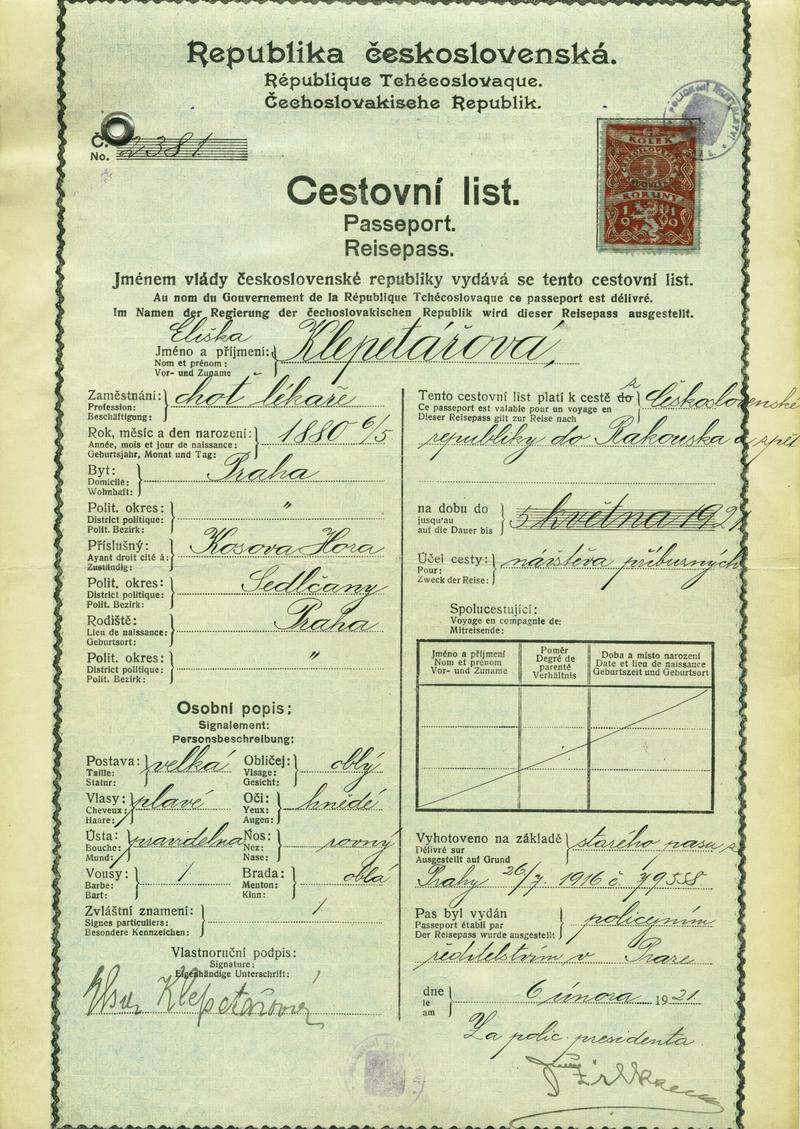 Republika československá.
République Tchécoslovaque.
Čechoslovakische Republik.
Č.
No. 2381
KOLEK
3
KORUNY
1919
Cestovní list.
Passeport.
Reisepass.
Jménem vlády československé republiky vydává se tento cestovní list.
Au nom du Gouvernement de la République Tchécoslovaque ce passeport est délivré.
Im Namen der Regierung der čechoslovakischen Republik wird dieser Reisepass ausgestellt.
Eliška
Jméno a příjmení: Klepetářová,
Nom et prénom:
Vor- und Zuname
Zaměstnání: choť lékaře
Profession:
Beschäftigung:
Rok, měsíc a den narození: 1880 6/5
Année, mois et jour de naissance:
Geburtsjahr, Monat und Tag:
Byt: Praha
Domicile:
Wohnhaft:
Polit. okres: "
District politique:
Polit. Bezirk:
Příslušný: Kosova Hora
Ayant droit cité à:
Zuständig:
Polit. okres: Sedlčany
District politique:
Polit. Bezirk:
Rodiště: Praha
Lieu de naissance:
Geburtsort:
Polit. okres: "
District politique:
Polit. Bezirk:
Osobní popis:
Signalement:
Personsbeschreibung:
Postava: velká Obličej: oblý
Taille: Visage:
Statur: Gesicht:
Vlasy: plavé Oči: hnědé
Cheveux: Yeux:
Haare: Augen:
Ústa: pravidelná Nos: rovný
Bouche: Nez:
Mund: Nase:
Vousy: / Brada: oblá
Barbe: Menton:
Bart: Kinn:
Zvláštní znamení: /
Signes particuliers:
Besondere Kennzeichen:
Vlastnoruční podpis:
Signature:
Eigenhändige Unterschrift:
Klepetářová
Tento cestovní list platí k cestě do z Československé
Ce passeport est valable pour un voyage en
Dieser Reisepass gilt zur Reise nach
republiky do Rakouska a zpět
na dobu do 5 května 1921
jusqu'au
auf die Dauer bis
Účel cesty: návštěva příbuzných
Pour:
Zweck der Reise:
Spolucestující:
Voyage en compagnie de:
Mitreisende:
Jméno a příjmení Poměr Doba a místo narození
Nom et prénom Degré de parenté Date et lieu de naissance
Vor- und Zuname Verhältnis Geburtszeit und Geburtsort
Vyhotoveno na základě starého pasu z
Délivré sur
Ausgestellt auf Grund
Prahy 26/7 1916 č. 79558
Pas byl vydán policejním
Passeport établi par
Der Reisepass wurde ausgestellt
ředitelstvím v Praze
dne 6 února 1921
le
am
Za polic. presidenta